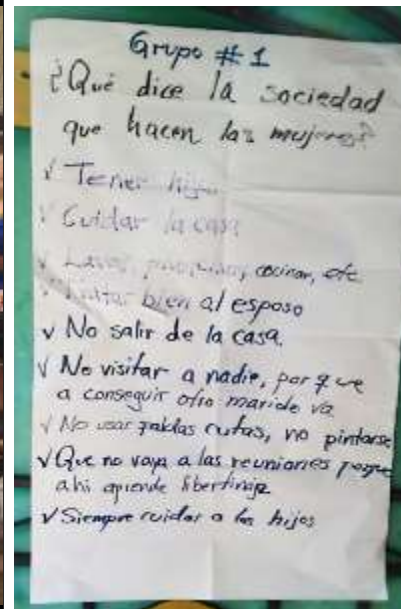 Grupo # 1
¿Qué dice la sociedad
que hacen las mujeres?
√ Tener hijos
√ Cuidar la casa
√ Lavar, cocinar, etc.
√ Tratar bien al esposo
√ No salir de la casa.
√ No visitar a nadie, por que
a conseguir otro marido va
√ No usar faldas cutas, no pintarse
√ Que no vaya a las reuniones porque
ahi aprende libertinaje
√ Siempre cuidar a los hijos